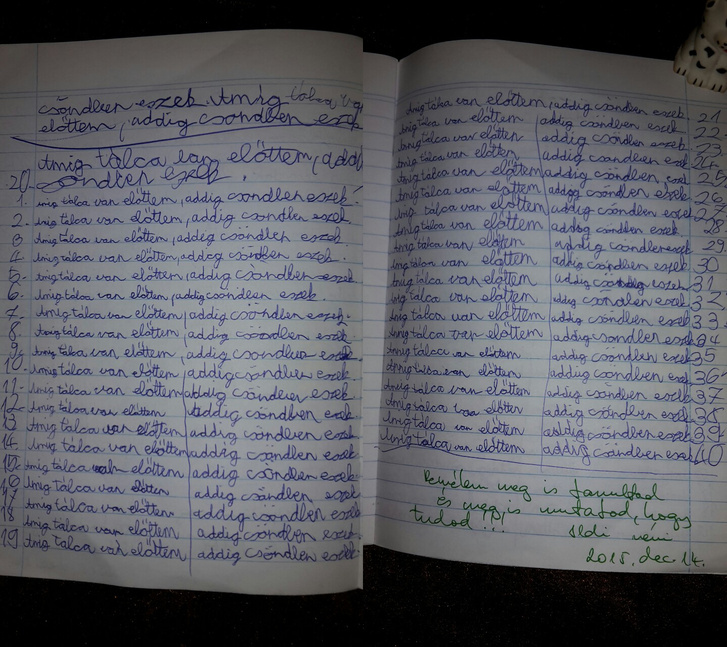 csöndben eszek. Amíg tálca van
előttem, addig csöndben eszek
Amíg tálca van előttem, addi
20. csöndben eszek.
1. Amíg tálca van előttem, addig csöndben eszek.
2. Amíg tálca van előttem, addig csöndben eszek.
3 Amíg tálca van előttem, addig csöndben eszek.
4. Amíg tálca van előttem, addig csöndben eszek.
5. Amíg tálca van előttem, addig csöndben eszek
6. Amíg tálca van előttem, addig csöndben eszek.
7. Amíg tálca van előttem, addig csöndben eszek.
8. Amíg tálca van előttem, addig csöndben eszek.
9. Amíg tálca van előttem addig csöndben eszek.
10. Amíg tálca van előttem, addig csöndben eszek.
11. Amíg tálca van előttem addig csöndben eszek.
12 Amíg tálca van előttem addig csöndben eszek.
13 Amíg tálca van előttem addig csöndben eszek
14. Amíg tálca van előttem addig csöndben eszek.
Amíg tálca van előttem addig csöndben eszek.
Amíg tálca van előttem addig csöndben eszek.
17 Amíg tálca van előttem addig csöndben eszek.
18 Amíg tálca van előttem addig csöndben eszek.
19 Amíg tálca van előttem addig csöndben eszek.
Amíg tálca van előttem, addig csöndben eszek. 21
Amíg tálca van előttem addig csöndben eszek. 22
Amíg tálca van előttem addig csöndben eszek. 23
Amíg tálca van előttem addig csöndben eszek 24
Amíg tálca van előttem addig csöndben eszek 25
Amíg tálca van előttem addig csöndben eszek. 26
Amíg tálca van előttem addig csöndben eszek. 27
Amíg tálca van előttem addig csöndben eszek. 28
Amíg tálca van előttem addig csöndben eszek. 29
Amíg tálca van előttem addig csöndben eszek. 30
Amíg tálca van előttem addig eszek 31
Amíg tálca van előttem addig csöndben eszek. 32
Amíg tálca van előttem addig csöndben eszek. 33
Amíg tálca van előttem addig csöndben eszek 34
Amíg tálca van előttem addig csöndben eszek 35
előttem addig csöndben eszek. 36
Amíg tálca van előttem addig csöndben eszek. 37
Amíg tálca van előttem addig csöndben eszek. 38
Amíg tálca van előttem addig csöndben eszek. 39
Amíg tálca van előttem addig csöndben eszek 40
Remélem meg is tanultad
és meg is mutatod, hogy
tudod!!! Ildi néni
2015. dec. 14.